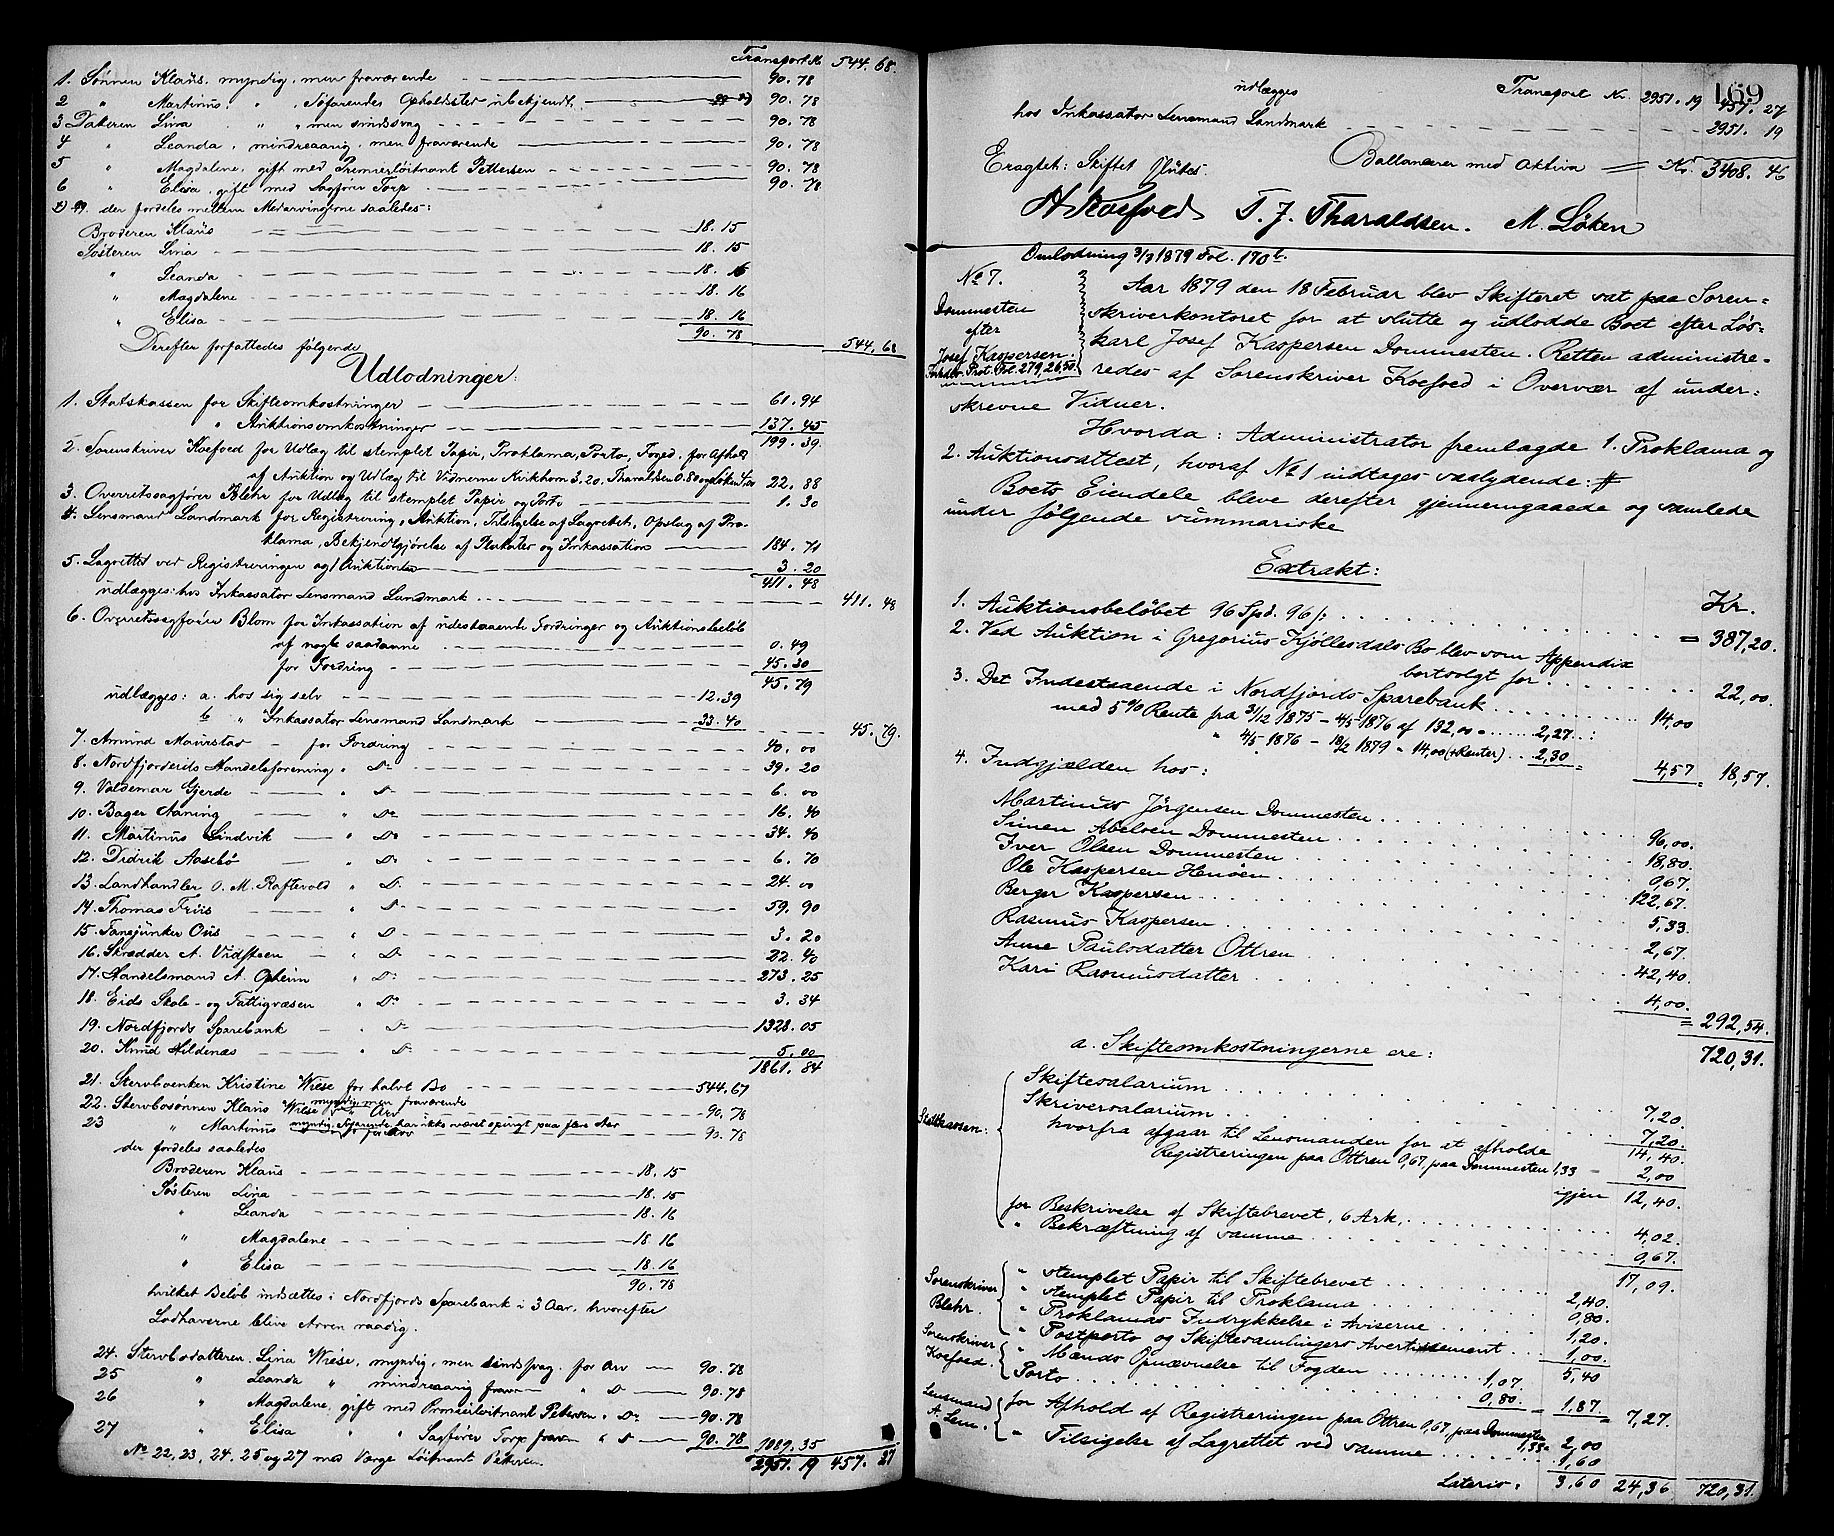 Transport Kr 544. 68.
1. Sønnen Klaus, myndig, men fraværende 90. 78
2 " Martinus, " , Søfarendes Opholdsted ubekjendt 90. 78
3 Datteren Lina " " men sindssvag 90. 78
4 " Leanda, mindreaarig, men fraværende 90. 78
5 " Magdalene, gift med Premierløitnant Pettersen 90. 78
6 " Elisa, gift med Sagfører Torp 90. 78
der fordeles mellem Medarvingerne saaledes:
Broderen Klaus 18. 15
Søsteren Lina 18. 15
" Leanda 18. 16
" Magdalene 18. 16
" Elisa 18. 16
90. 78 544. 68
Derefter forfattedes følgende
Udlodninger:
1. Statskassen for Skifteomkostninger 61. 94
" Auktionsomkostninger 137. 45
199. 39.
2. Sorenskriver Koefoed for Udlæg til stemplet Papir, Proklama, Porto, Foged. for Afhold
af Auktion og Udlæg til Vidnerne Kirkhorn 3.20. Tharaldsen 0.80 og Løken 22. 88
3. Overretssagfører Blehr for Udlæg til stemplet Papir og Porto 1. 30
4. Lensmand Landmark for Registrering, Auktion, Tilsigelse af Lagrettet, Opslag af Pro-
klama, Bekjendtgjørelse af Plakater og Inkassation 184. 71
5. Lagrettet ved Registreringen og Auktionen 3. 20
411. 48
udlægges: hos Inkassator Lensmand Landmark 411. 48
6. Overretssagfører Blom for Inkassation af udestaaende Fordringer og Auktionsbeløb
af nogle saadanne 0. 49
for Fordring 45. 30
45. 79
udlægges: a. hos sig selv 12.39
b " Inkassator Lensmand Landmark 33. 40 45. 79.
7. Amund Maurstad - for Fordring 40. 00
8. Nordfjordeids Handelsforening " Do 39. 20
9. Valdemar Gjerde " Do 6. 00
10. Bager Naning " Do 16. 40
11. Martinus Lindvik " Do 34. 40
12. Didrik Aasebø " Do 6. 70
13. Landhandler O. M. Raftevold " Do 24. 00
14. Thomas Friis " Do 59. 90
15. Fanejunker Ous " Do 3. 20
16. Skrædder A. Vidsteen " Do 22. 40
17. Handelsmand A. Opheim " Do 273. 25
18. Eids Skole- og Fattigvæsen " Do 3. 34
19. Nordfjords Sparebank " Do 1328. 05
20. Knud Hildenæs " Do 5. 00
1861. 84
21. Stervboenken Kristine Wiese for halvt Bo 544.67
22. Stervbosønnen Klaus Wiese myndig, men fraværende for Arv 90. 78
23 " Martinus myndig, Søfarende har ikke været spurgt paa flere Aar for Arv 90. 78
der fordeles saaledes
Broderen Klaus 18. 15
Søsteren Lina 18. 15
" Leanda 18. 16
" Magdalene 18. 16
" Elisa 18. 16
90. 78
hvilket Beløb indsættes i Nordfjords Sparebank i 3 Aar, hvorefter
Lodhaverne blive Arven raadig.
24. Stervbodatteren Lina Wiese, myndig, men sindssvag. for Arv 90. 78
25 " Leanda " mindreaarig frav. " Do 90. 78
26 " Magdalene, gift med Premierløitnant Petersen " Do 90. 78
27 " Elisa " " Sagfører Torp frav. " Do 90. 78 1089. 35
No 22, 23, 24, 25 og 27 med Værge Løitnant Petersen. 2951. 19 457. 27
169
udlægges Transport Kr. 2951. 19 457. 27
hos Inkassator Lensmand Landmark 2951. 19
Eragtet: Skiftet sluttes. Ballancerer med Aktiva = Kr. 3408. 46
A Koefoed T. J. Tharaldsen. M. Løken
Omlodning 3/9 1879 Fol. 170 b.
No 7.
Dommesten
efter
Josef Kaspersen.
Aar 1879 den 18 Februar blev Skifteret sat paa Soren-
skriverkontoret for at slutte og udlodde Boet efter Løs-
karl Josef Kaspersen Dommesten. Retten administre-
redes af Sorenskriver Koefoed i Overvær af under-
skrevne Vidner.
Hvorda: Administrator fremlagde 1. Proklama og
2. Auktionsattest, hvoraf No 1 indtages saalydende: #
Boets Eiendele bleve derefter gjennemgaaede og samlede
under følgende summariske
Extrakt:
Kr.
1. Auktionsbeløbet 96 Spd. 96 /: = 387,20.
2. Ved Auktion i Gregorius Kjøllesdals Bo blev som Appendix
bortsolgt for 22,00.
3. Det Indestaaende i Nordfjords Sparebank 14,00
med 5% Rente fra 31/12 1875 - 4/5 1876 af 132,00 = 2,27
" 4/5 1876 - 18/2 1879 " 14,00 (+Renter) 2,30 = 4,57 18,57.
4. Indgjælden hos:
Martinus Jørgensen Dommesten 96,00.
Simen Abelsen Dommesten 18,80.
Iver Olsen Dommesten 0,67.
Ole Kaspersen Henøen 122,67.
Berger Kaspersen 5,33.
Rasmus Kaspersen 2,67.
Anne Paulsdatter Ottren 42,40.
Kari Rasmusdatter 4,00.
= 292,54.
720,31.
a. Skifteomkostningerne ere:
Statskassen:
Skiftesalarium 7,20.
Skriversalarium 7,20.
14,40.
hvorfra afgaar til Lensmanden for at afholde
Registreringen paa Ottren 0,67, paa Dommesten 1,33 = 2,00
igjen 12,40.
for Beskrivelse af Skiftebrevet, 6 Ark, 4,02.
" Bekræftning af samme 0,67.
17,09.
Sorenskriver
Blehr.
" stemplet Papir til Skiftebrevet 2,40.
" stemplet Papir til Proklama 0,80.
" Proklamas Indrykkelse i Aviserne 1,20.
" Postporto og Skiftesamlingers Avertissement 1,00.
5,40
Sorenskriver
Koefoed.
" Mænds Opnævnelse til Fogden 1,07.
Porto 0,80. = 1,87. = 7,27.
Lensmand
A. Lem.
for Afhold af Registreringen paa Ottren 0,67, paa Dommesten
1,33 = 2,00
" Tilsigelse af Lagrettet ved samme 1,60
Lateris: 3,60 24,36 720,31.